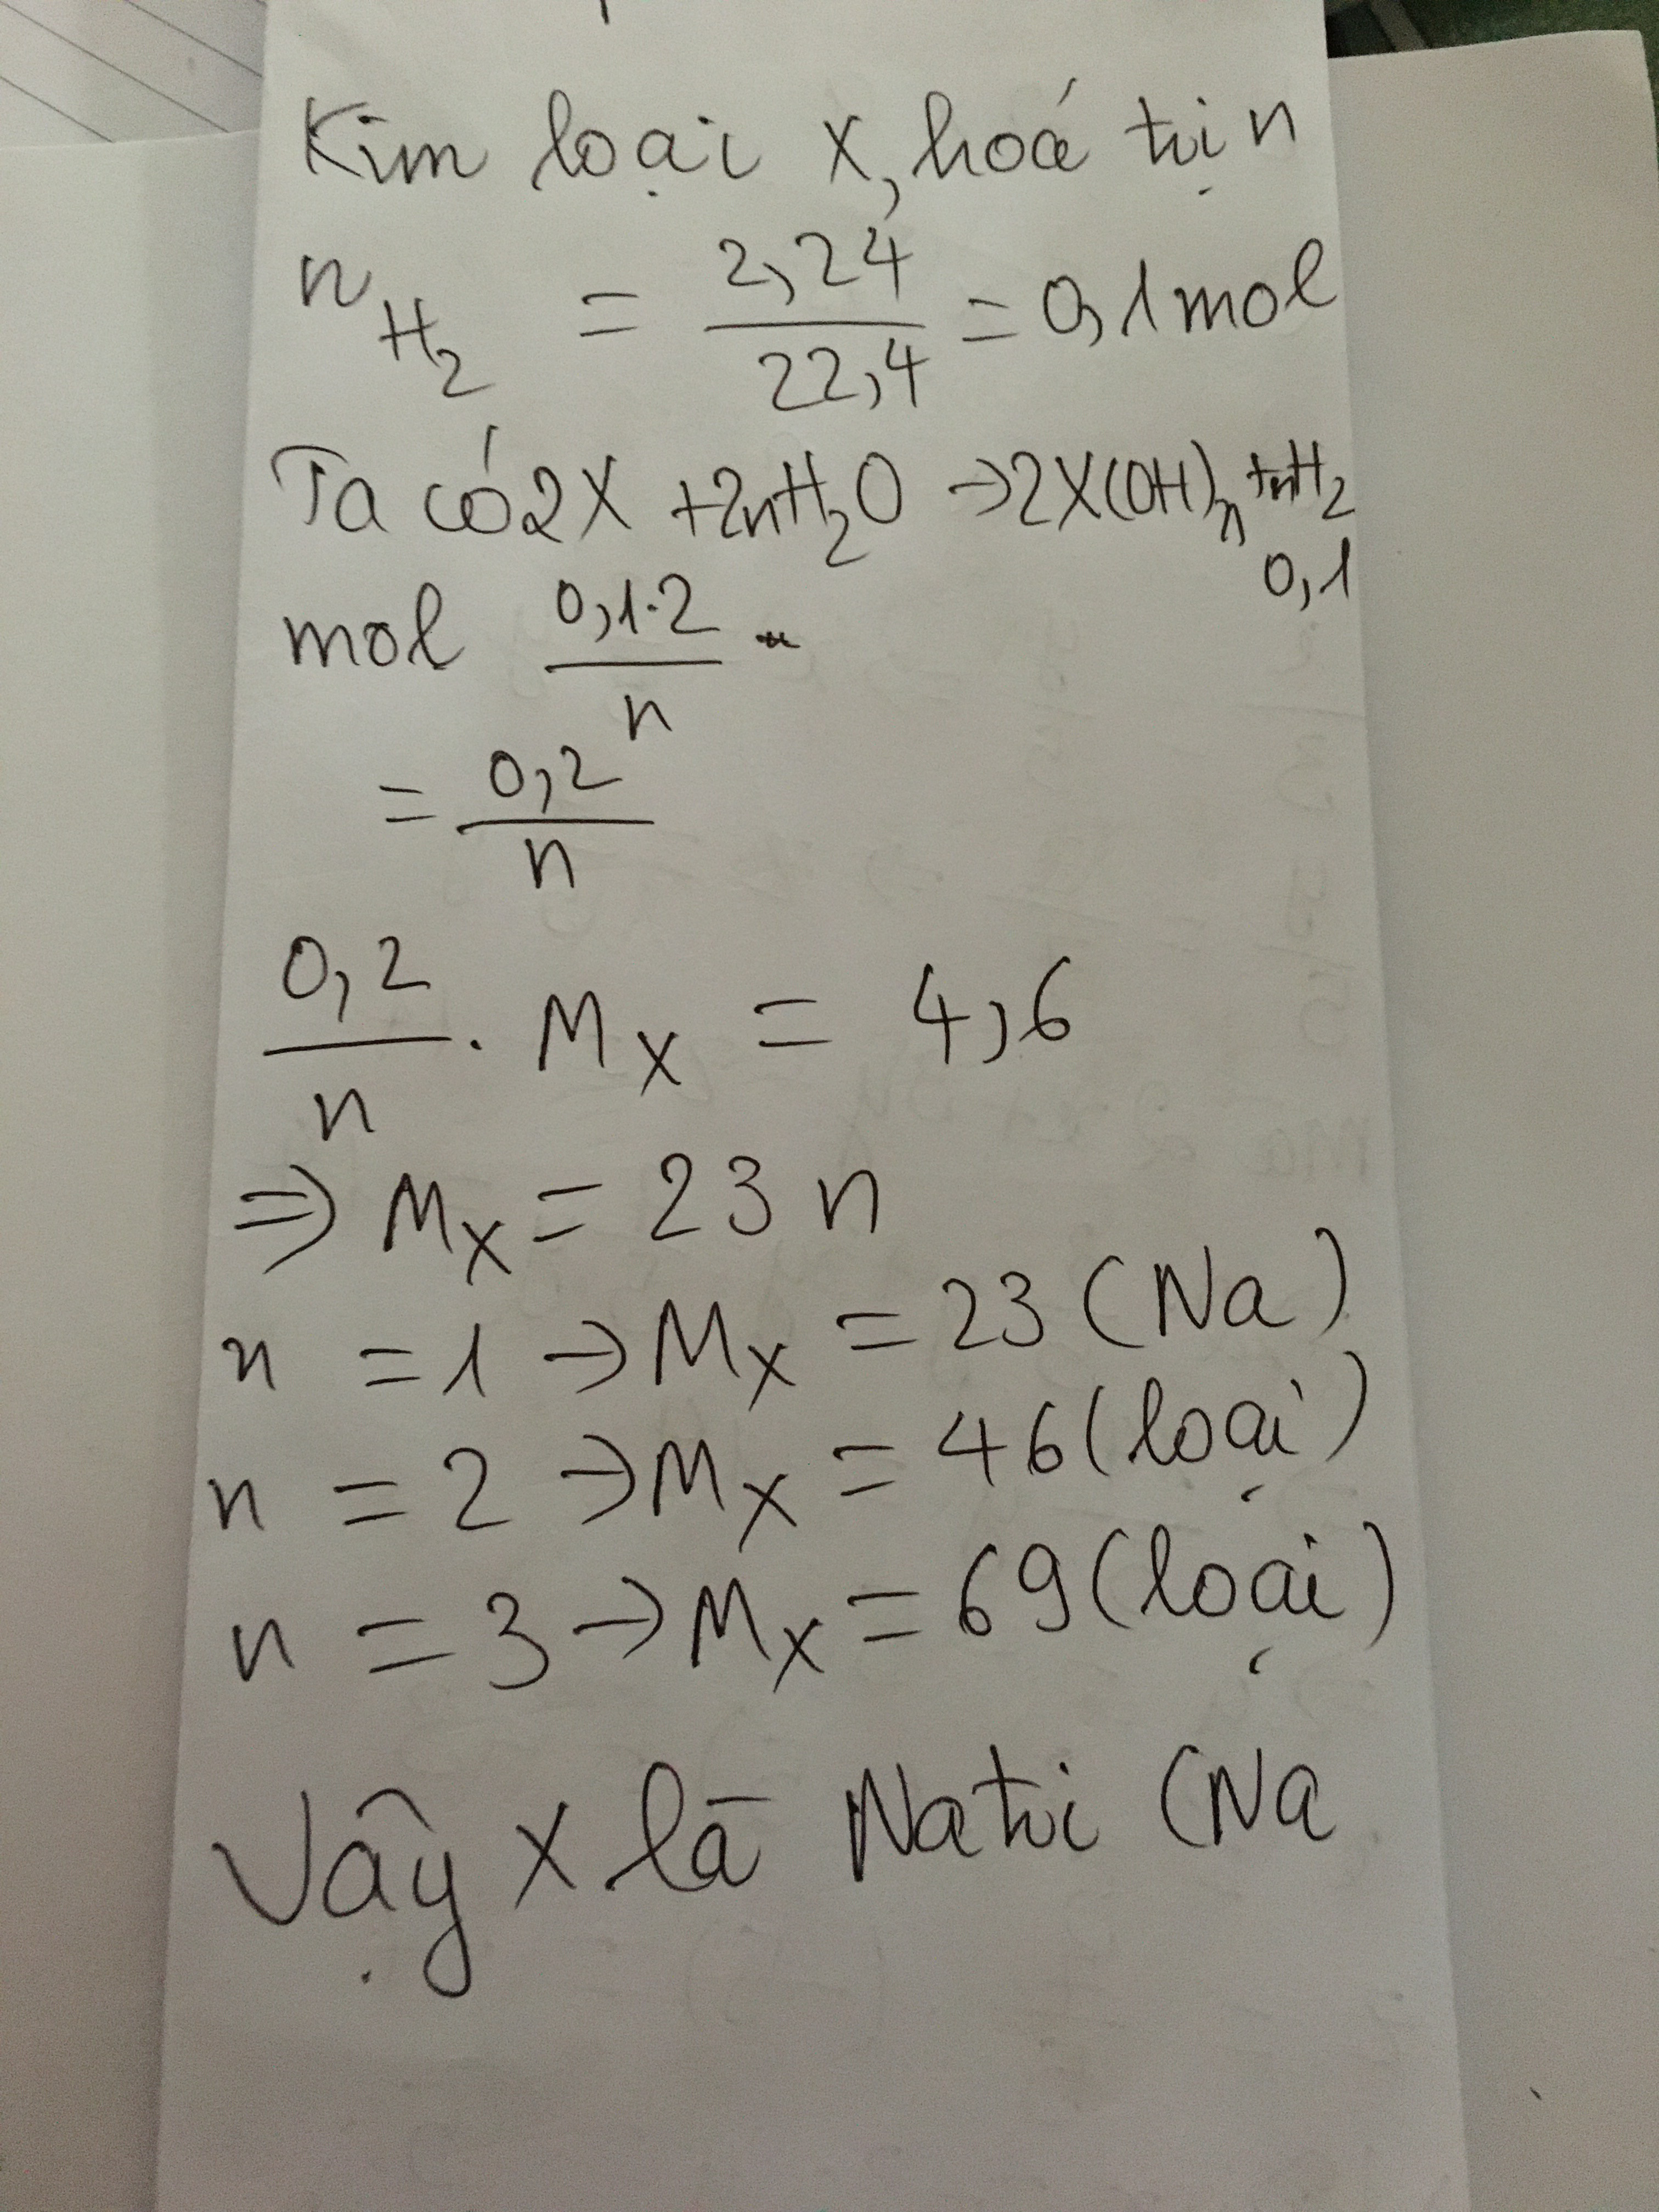 Kim loại X, hoá trị n
n H₂ = 2,24 / 22,4 = 0,1 mol
Ta có 2X + 2nH₂O → 2X(OH)ₙ + nH₂
0,1
mol 0,1.2 / n
= 0,2 / n
0,2 / n . Mₓ = 4,6
⇒ Mₓ = 23 n
n = 1 → Mₓ = 23 (Na)
n = 2 → Mₓ = 46 (loại)
n = 3 → Mₓ = 69 (loại)
Vậy X là Natri (Na